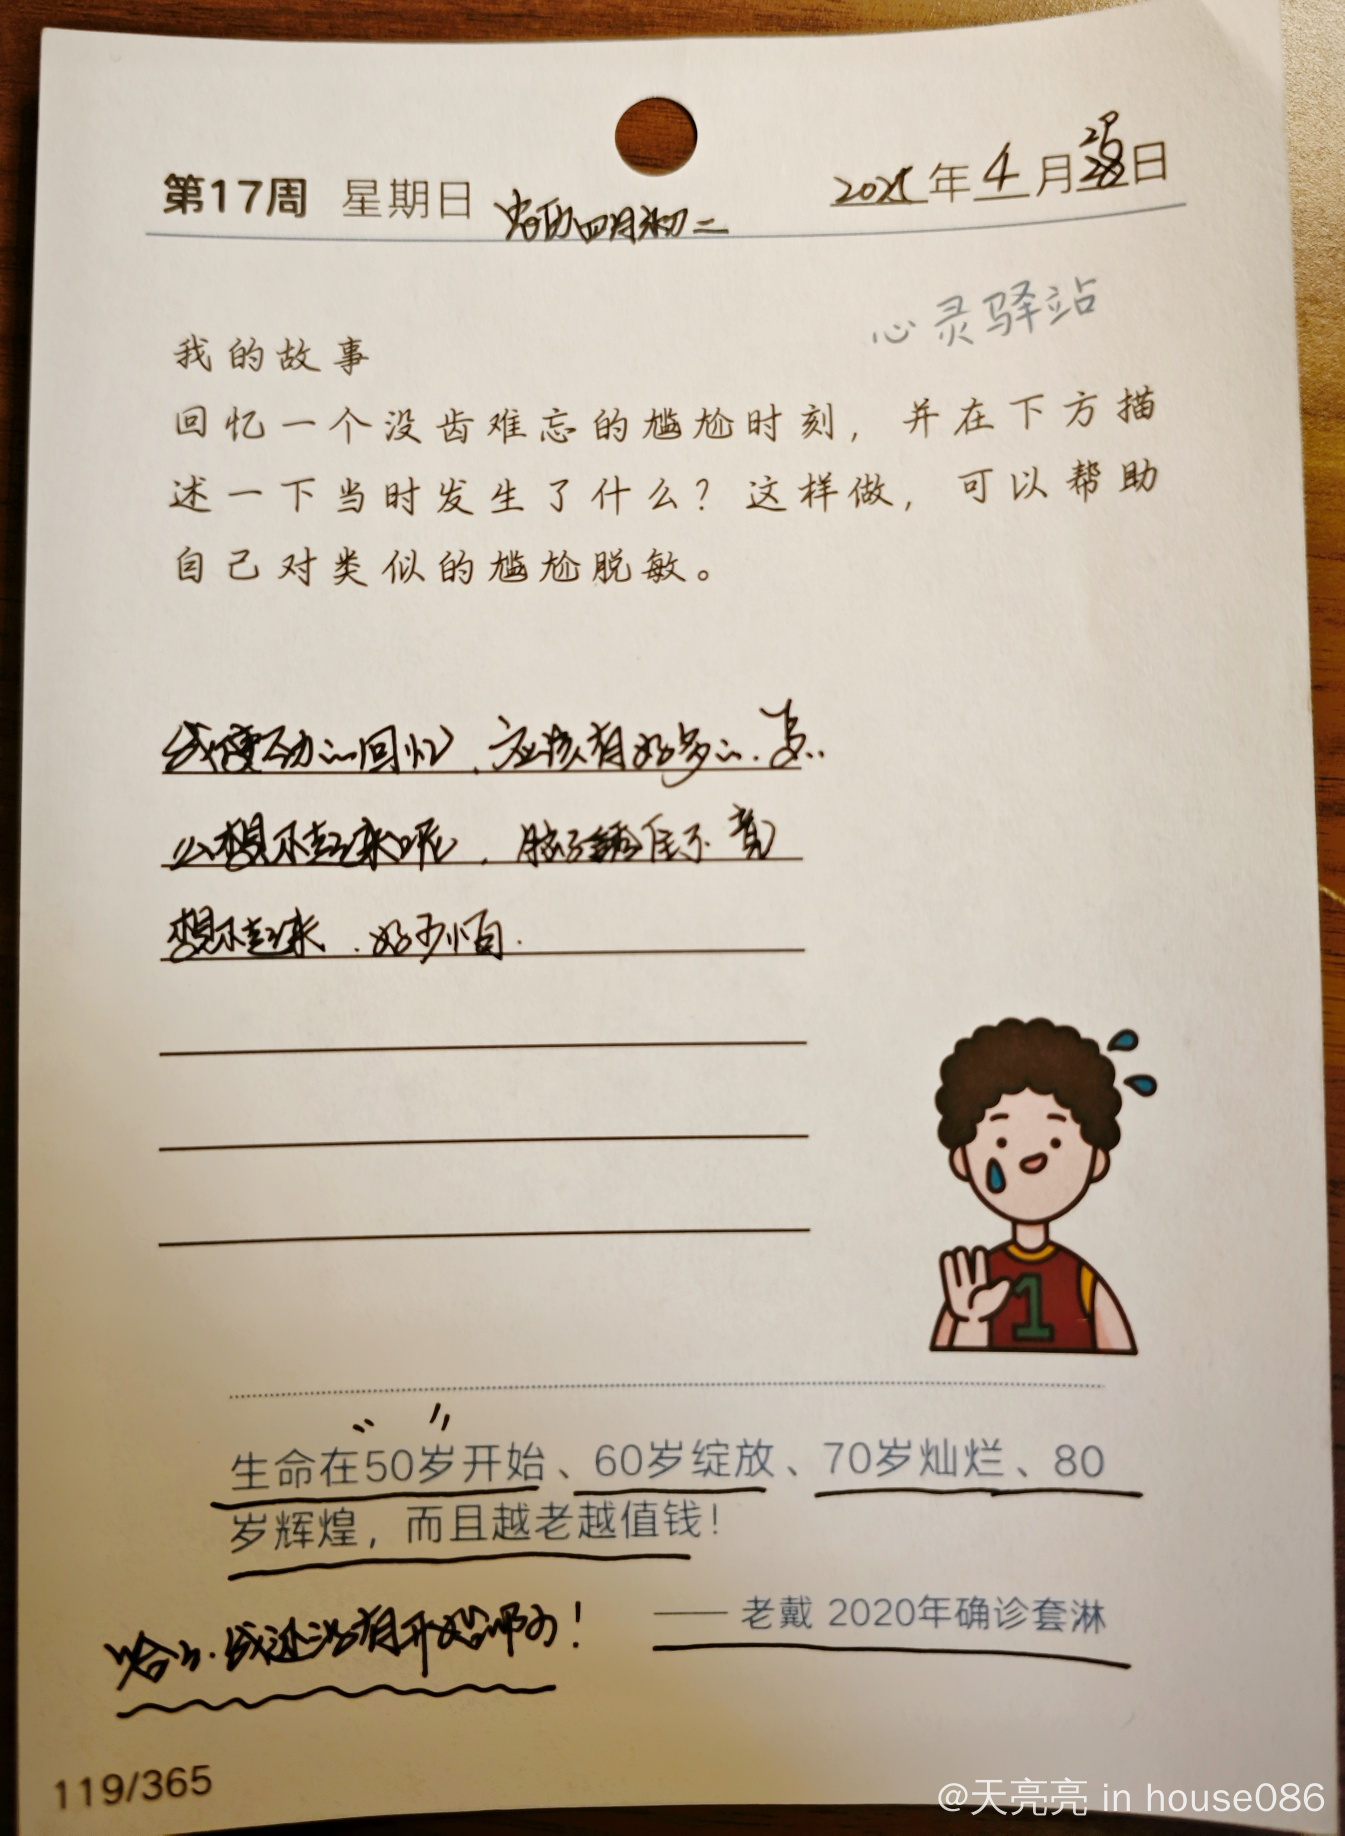 第17周 星期日 农历四月初二 2025年4月29日
心灵驿站
我的故事
回忆一个没齿难忘的尴尬时刻，并在下方描
述一下当时发生了什么？这样做，可以帮助
自己对类似的尴尬脱敏。
的回忆，应该有好多的.怎
么想不起来呢，脑子锈住了竟
想不起来.好
生命在50岁开始、60岁绽放、70岁灿烂、80
岁辉煌，而且越老越值钱！
—— 老戴 2020年确诊套淋
哈哈.我还没有开始呢！
119/365
@天亮亮 in house086